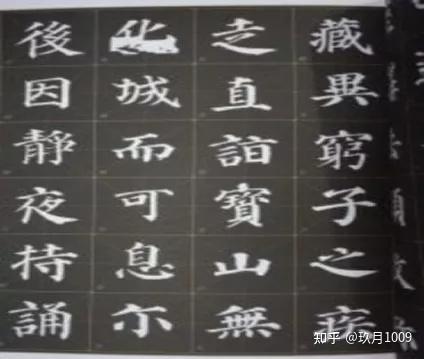 藏異窮子之疾
走直詣寶山無
化城而可息尒
後因靜夜持誦
知乎 @玖月1009